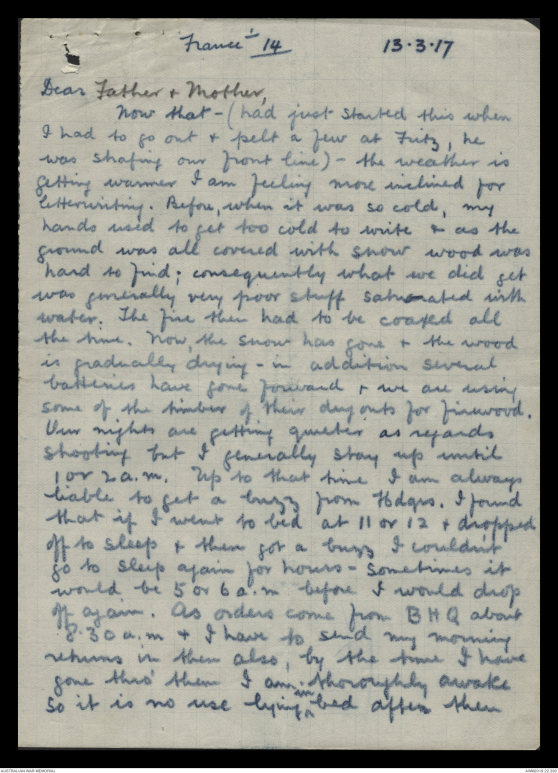 France 14 13.3.17
Dear Father & Mother,
Now that - (had just started this when
I had to go out & pelt a few at Fritz, he
was strafing our front line) - the weather is
getting warmer I am feeling more inclined for
letterwriting. Before, when it was so cold, my
hands used to get too cold to write & as the
ground was all covered with snow wood was
hard to find; consequently what we did get
was generally very poor stuff saturated with
water. The fire then had to be coaxed all
the time. Now, the snow has gone & the wood
is gradually drying - in addition several
batteries have gone forward & we are using
some of the timber of their dug outs for firewood.
Our nights are getting quieter as regards
shooting but I generally stay up until
1 or 2 a.m. Up to that time I am always
liable to get a buzz from Hdqrs. I found
that if I went to bed at 11 or 12 & dropped
off to sleep & then got a buzz I couldn't
go to sleep again for hours - sometimes it
would be 5 or 6 a.m before I would drop
off again. As orders come from BHQ about
8.30 a.m & I have to send my morning
returns in then also, by the time I have
gone thro' them I am thoroughly awake
so it is no use lying in bed after then
AUSTRALIAN WAR MEMORIAL